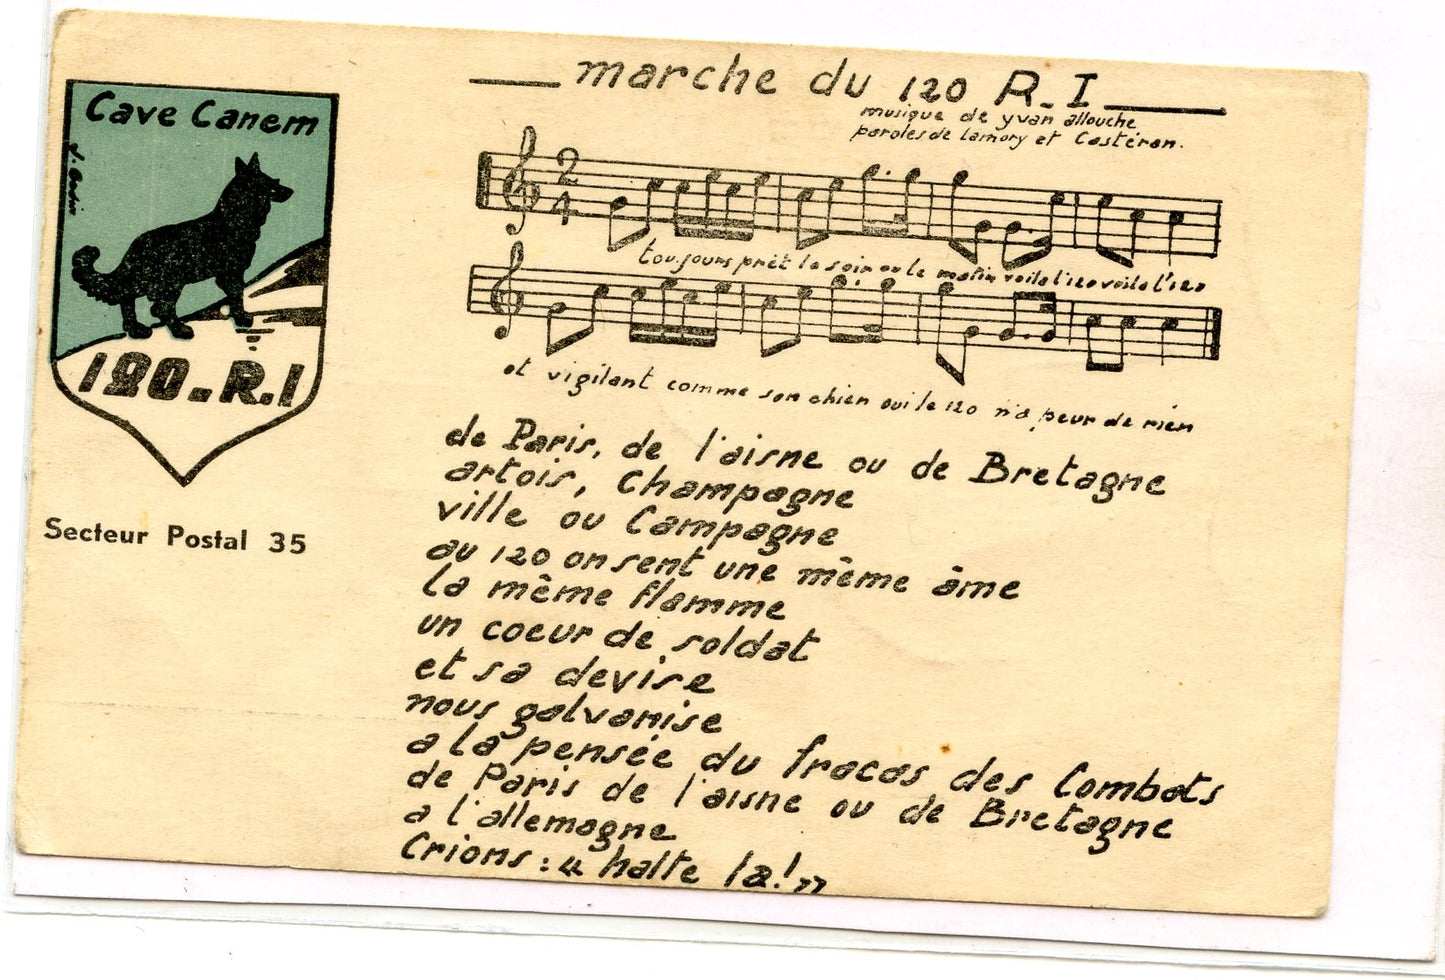 marche du 120 R.I
musique de yvan allouche
paroles de lamory et Castéran.
Cave Canem
2
4
toujours prêt le soir ou le matin voila l'120 voila l'120
et vigilant comme son chien oui le 120 n'a peur de rien
120.R.I
Secteur Postal 35
de Paris, de l'aisne ou de Bretagne
artois, Champagne
ville ou Campagne
au 120 on sent une même âme
la même flamme
un coeur de soldat
et sa devise
nous galvanise
a la pensée du fracas des Combats
de Paris de l'aisne ou de Bretagne
a l'allemagne
Crions : « halte la! »